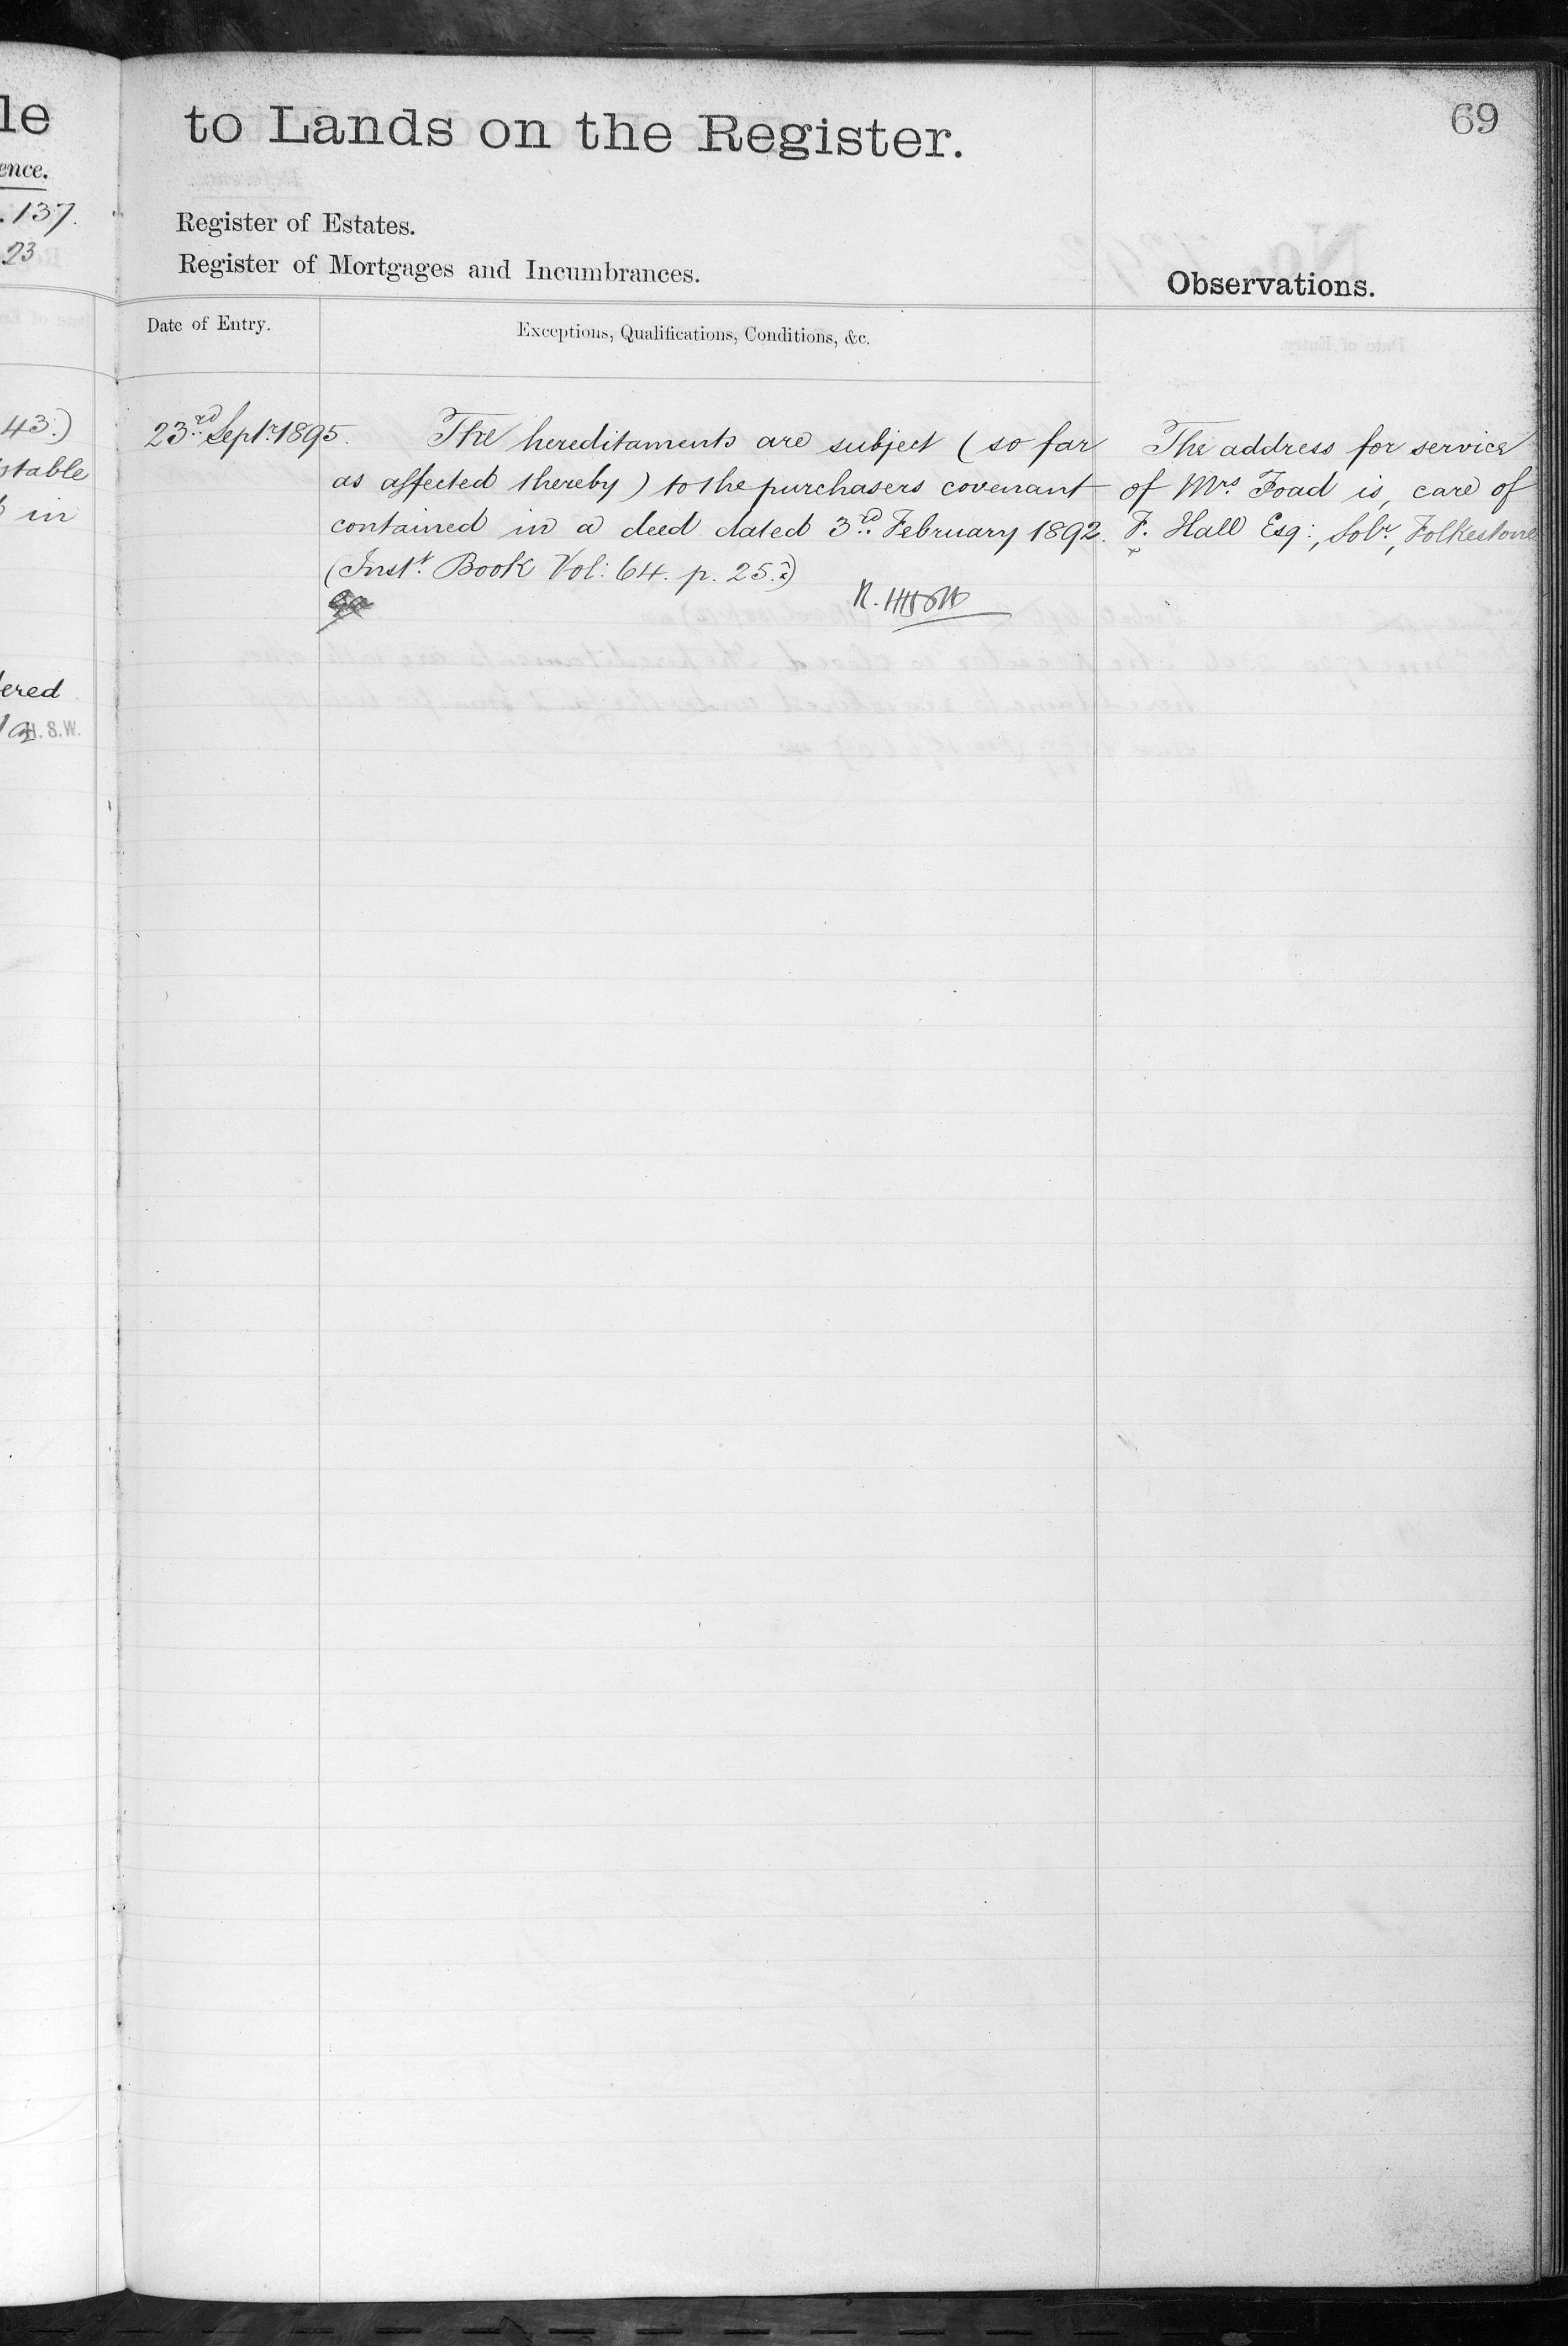 le
ence.
.137.
23
43.)
stable
in
ered
H. S.W.
to Lands on the Register.
69
Register of Estates.
Register of Mortgages and Incumbrances.
Observations.
Date of Entry.
Exceptions, Qualifications, Conditions, &c.
23rd Septr 1895.
The hereditaments are subject (so far
as affected thereby) to the purchasers covenant
contained in a deed dated 3rd February 1892.
(Instt. Book Vol: 64. p. 25.)
The address for service
of Mrs Foad is, care of
F. Hall Esq:, Solr, Folkestone